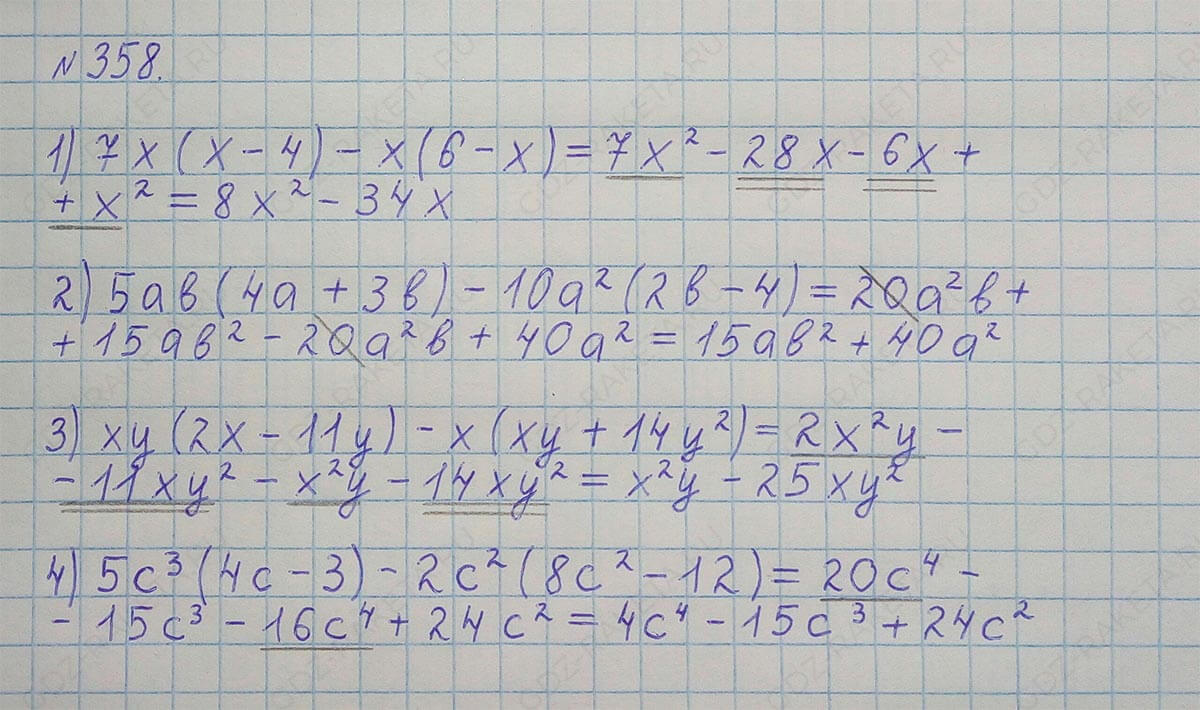 № 358.
1) 7x(x-4)-x(6-x)=7x²-28x-6x+
+x²=8x²-34x
2) 5ab(4a+3b)-10a²(2b-4)=20a²b+
+15ab²-20a²b+40a²=15ab²+40a²
3) xy(2x-11y)-x(xy+14y²)=2x²y-
-11xy²-x²y-14xy²=x²y-25xy²
4) 5c³(4c-3)-2c²(8c²-12)=20c⁴-
-15c³-16c⁴+24c²=4c⁴-15c³+24c²
GDZ-RAKETA.RU